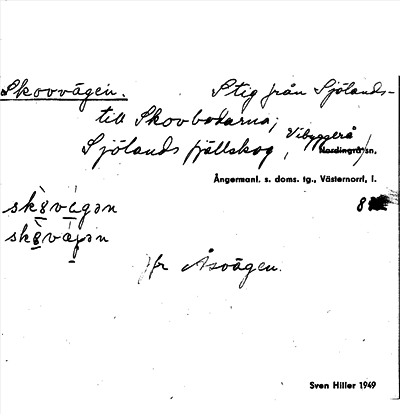 Skovvägen. Stig från Sjölands-
till Skovbodarna,
Sjölands fjällskog, Vibyggerå
Nordingrå sn.
Ångermanl. s. doms. tg., Västernorrl. l.
jfr Åsvägen.
Sven Hiller 1949